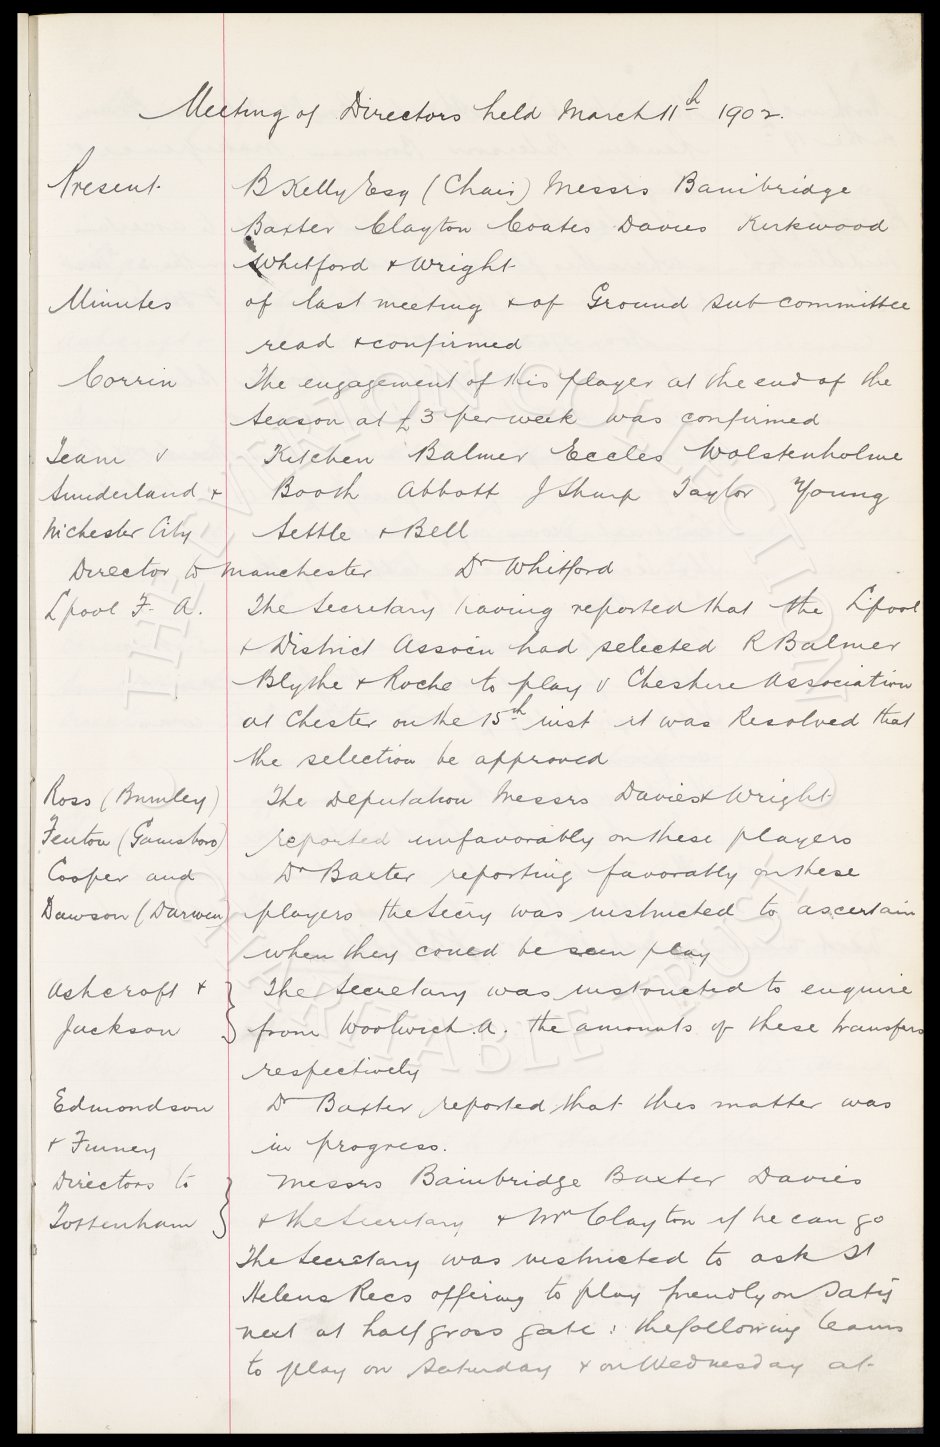 Meeting of Directors held March 11th 1902.
Present B Kelly Esq (Chair) Messrs Bainbridge
Baxter Clayton Coates Davies Kirkwood
Whitford & Wright
Minutes of last meeting & of Ground sub committee
read & confirmed
Corrin The engagement of this player at the end of the
season at £3 per week was confirmed
Team v Kitchen Balmer Eccles Wolstenholme
Sunderland & Booth Abbott J Sharp Taylor Young
M'chester City Settle & Bell
Director to Manchester Dr Whitford
L'pool F. A. The Secretary having reported that the L'pool
& District Assocn had selected R Balmer
Blythe & Roche to play v Cheshire Association
at Chester on the 15th inst it was Resolved that
the selection be approved
Ross (Burnley) The Deputation Messrs Davies & Wright
Fenton (Gainsboro) reported unfavorably on these players
Cooper and Dr Baxter reporting favorably on these
Dawson (Darwen) players the Secry was instructed to ascertain
when they could be seen play
Ashcroft & The Secretary was instructed to enquire
Jackson from Woolwich A. the amounts of these transfers
respectively
Edmondson Dr Baxter reported that this matter was
& Finney in progress.
Directors to Messrs Bainbridge Baxter Davies
Tottenham & the Secretary & Mr Clayton if he can go
The Secretary was instructed to ask St
Helens Recs offering to play friendly on Saty
next at half gross gate: the following teams
to play on Saturday & on Wednesday at
THE EVERTON COLLECTION
CHARITABLE TRUST